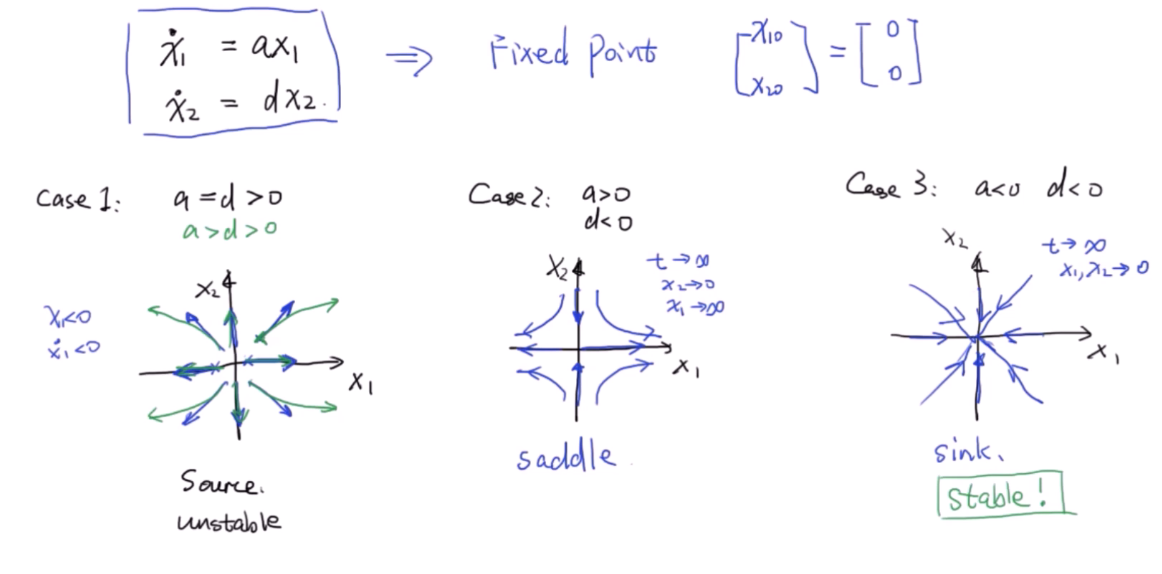 ẋ₁ = ax₁ ⇒ Fixed Point [x₁₀ x₂₀] = [0 0]
ẋ₂ = dx₂.
Case 1: a = d > 0
a > d > 0
x₂
x₁<0
ẋ₁<0
x₁
Source.
unstable
Case 2: a>0
d<0
x₂
t→∞
x₂→0
x₁→∞
x₁
saddle
Case 3: a<0 d<0
x₂
t→∞
x₁,x₂→0
x₁
sink.
Stable!